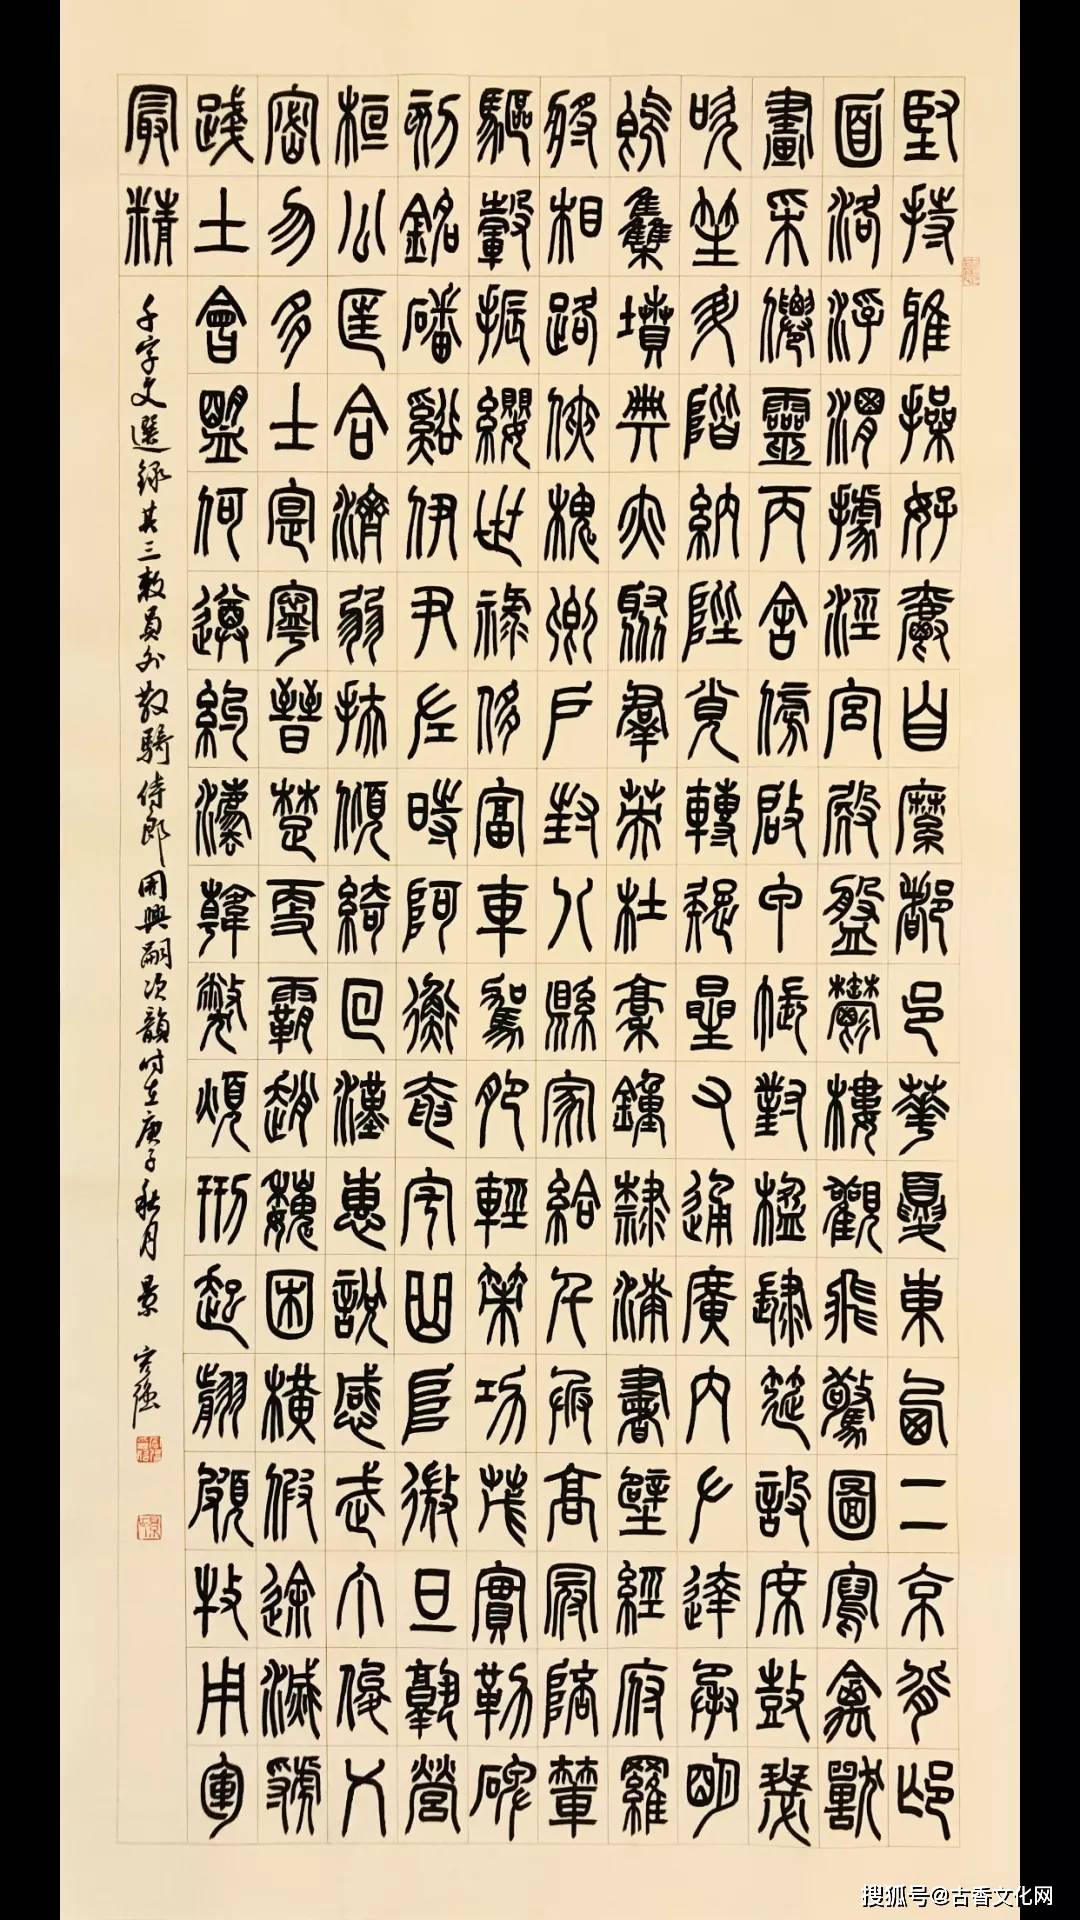 堅持雅操好爵自縻都邑華夏東西二京背邙
面洛浮渭據涇宮殿盤鬱樓觀飛驚圖寫禽獸
畫采僊靈丙舍傍啟甲帳對楹肆筵設席鼓瑟
吹笙升階納陛弁轉疑星右通廣內左達承明
既集墳典亦聚群英杜稾鍾隸漆書壁經府羅
將相路俠槐卿戶封八縣家給千兵高冠陪輦
驅轂振纓世祿侈富車駕肥輕策功茂實勒碑
刻銘磻谿伊尹佐時阿衡奄宅曲阜微旦孰營
桓公匡合濟弱扶傾綺回漢惠說感武丁俊乂
密勿多士寔寧晉楚更霸趙魏困橫假途滅虢
踐土會盟何遵約法韓弊煩刑起翦頗牧用軍
最精
千字文選錄其三敕員外散騎侍郎周興嗣次韻時在庚子秋月 景
搜狐号@古香文化网